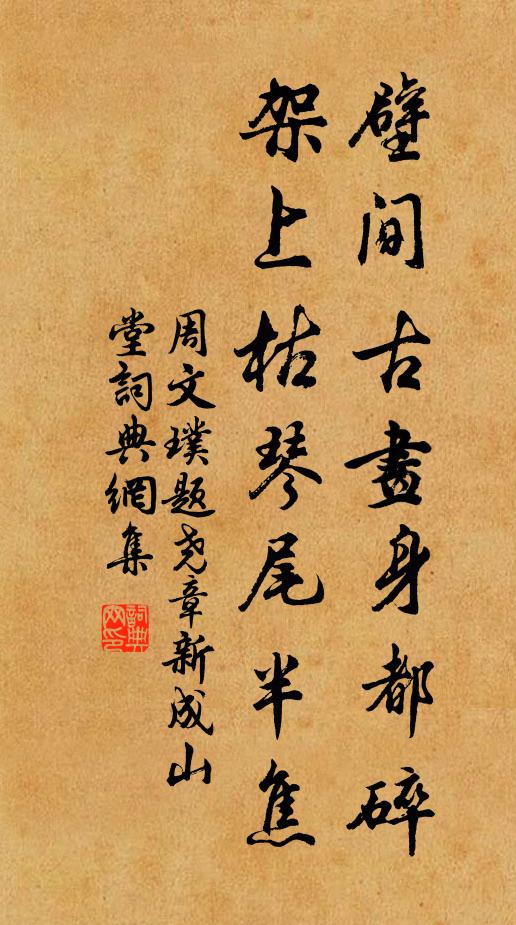 壁間古畫身都碎
架上枯琴尾半焦
周文璞題尧章新成山
堂詞典網集
詞典
网印